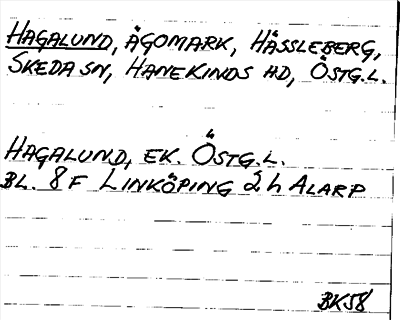 HAGALUND, ÄGOMARK, HÄSSLEBERG,
SKEDA SN, HANEKINDS HD, ÖSTG.L.
HAGALUND, EK. ÖSTG.L.
BL. 8F LINKÖPING 2h ALARP
BK58